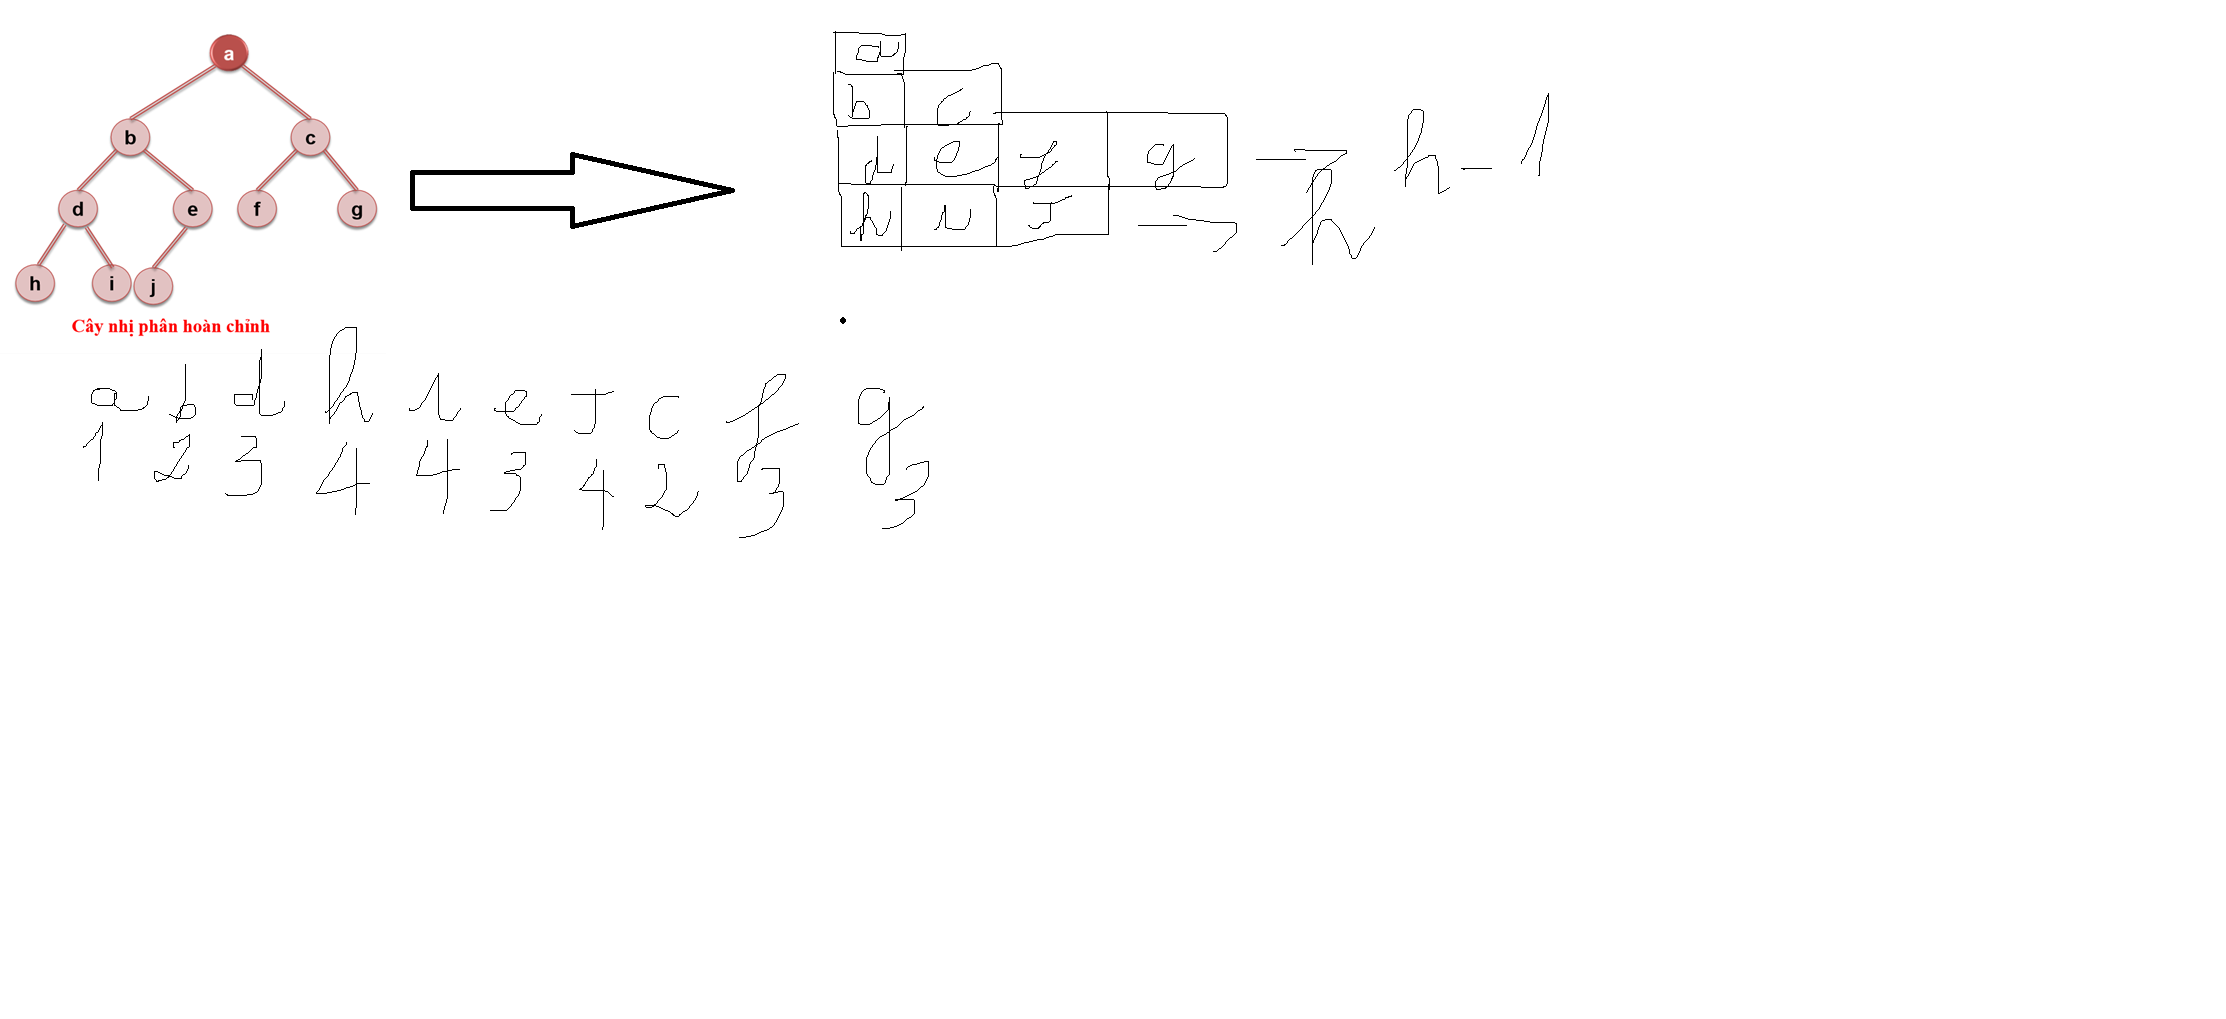 a
b c
d e f g
h i j
Cây nhị phân hoàn chỉnh
a
b c
d e f g → h - 1
h i j → h
a b d h i e j c f g
1 2 3 4 4 3 4 2 3 3